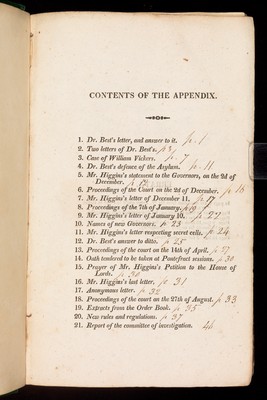 CONTENTS OF THE APPENDIX.
1. Dr. Best's letter, and answer to it. p. 1
2. Two letters of Dr. Best's. p 3
3. Case of William Vickers. p. 7
4. Dr. Best's defence of the Asylum. p. 11
5. Mr. Higgins's statement to the Governors, on the 2d of
December. p. 12
6. Proceedings of the Court on the 2d of December. p. 16
7. Mr. Higgins's letter of December 11. p. 17
8. Proceedings of the 7th of January. p. 19
9. Mr. Higgins's letter of January 10. p. 22
10. Names of new Governors. p. 23
11. Mr. Higgins's letter respecting secret cells. p. 24
12. Dr. Best's answer to ditto. p. 25
13. Proceedings of the court on the 14th of April. p. 27
14. Oath tendered to be taken at Pontefract sessions. p. 30
15. Prayer of Mr. Higgins's Petition to the House of
Lords. p. 30
16. Mr. Higgins's last letter. p. 31
17. Anonymous letter. p. 32
18. Proceedings of the court on the 27th of August. p. 33
19. Extracts from the Order Book. p. 35
20. New rules and regulations. p. 37
21. Report of the committee of investigation. 46